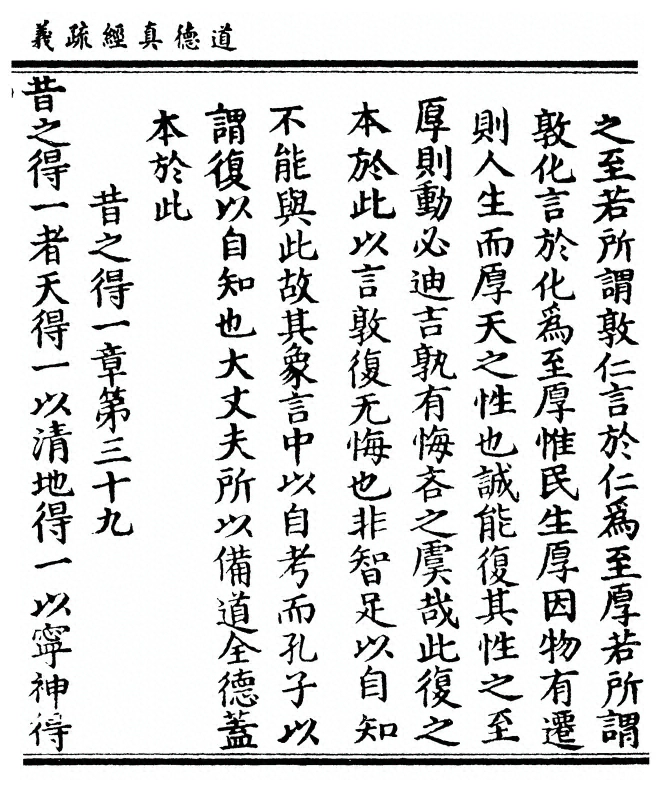 道德真經疏義
之至若所謂敦仁言於仁爲至厚若所謂
敦化言於化爲至厚惟民生厚因物有遷
則人生而厚天之性也誠能復其性之至
厚則動必迪吉孰有悔吝之虞哉此復之
本於此以言敦復无悔也非智足以自知
不能與此故其象言中以自考而孔子以
謂復以自知也大丈夫所以備道全德蓋
本於此
昔之得一章第三十九
昔之得一者天得一以清地得一以寧神得